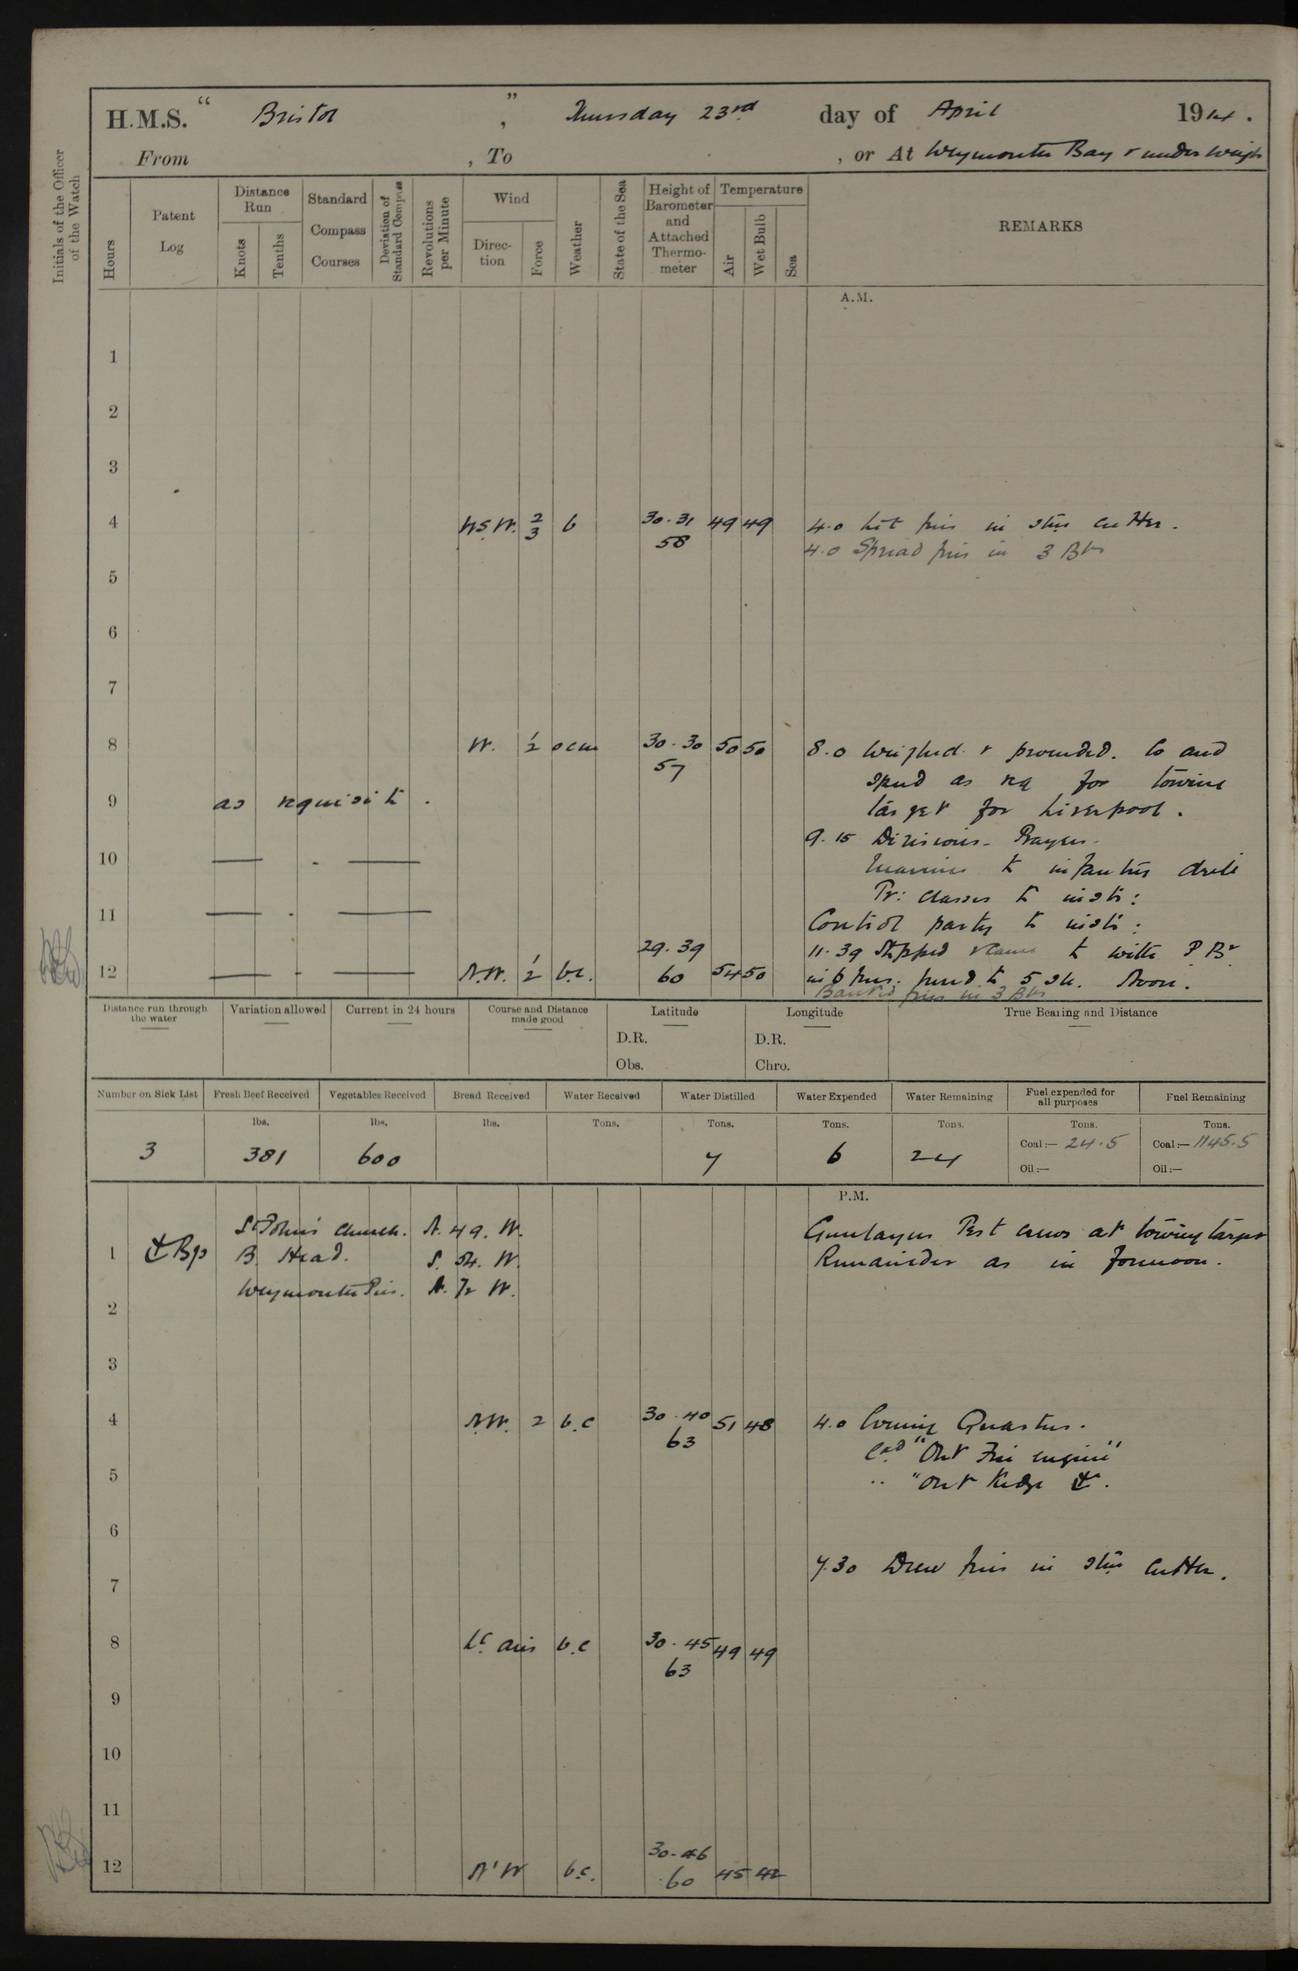 H.M.S. “ Bristol ”, Thursday 23rd day of April 1914.
From , To , or At Weymouth Bay & under weigh
Initials of the Officer of the Watch
Hours
Patent Log
Distance Run
Knots
Tenths
Standard Compass Courses
Deviation of Standard Compass
Revolutions per Minute
Wind
Direction
Force
Weather
State of the Sea
Height of Barometer and Attached Thermometer
Temperature
Air
Wet Bulb
Sea
REMARKS
A.M.
1
2
3
4 W.S.W. 2/3 b 30.31 49 49 4.0 Lit fires in stm cutter.
58 4.0 Spread fires in 3 Blrs
5
6
7
8 W. 1/2 ocm 30.30 50 50 8.0 Weighed & proceeded. Co and
57 speed as req for towing
9 as requisite. target for Liverpool.
9.15 Divisions. Prayers.
10 — . — Marines to infantry drill
Pr: classes to instr:
11 — . — Control party to instr:
29.39 11.39 Stopped & came to with P. Br
12 — - — N.W. 1/2 b.c. 60 54 50 in 6 fms. veered to 5 sh. Noon.
Banked fires in 3 Blrs
Distance run through the water
Variation allowed
Current in 24 hours
Course and Distance made good
Latitude
D.R.
Obs.
Longitude
D.R.
Chro.
True Bearing and Distance
Number on Sick List
Fresh Beef Received
Vegetables Received
Bread Received
Water Received
Water Distilled
Water Expended
Water Remaining
Fuel expended for all purposes
Fuel Remaining
lbs. lbs. lbs. Tons. Tons. Tons. Tons. Tons. Tons.
3 381 600 7 6 24 Coal:— 24.5 Coal:— 1145.5
Oil:— Oil:—
P.M.
St John's Church. N. 49. W. Gunlayers Test crews at towing target
1 ⚓ Bgs B. Head. S. 54. W. Remainder as in forenoon.
Weymouth Pier. N. 72 W.
2
3
4 N.W. 2 b.c 30.40 51 48 4.0 Evening Quarters.
63 Exd "Out Fire engine"
5 .. "Out Kedge ⚓".
6
7.30 Drew fires in stm cutter.
7
8 Lt airs b.c 30.45 49 49
63
9
10
11
30.46
12 N'W b.c. 60 45 42